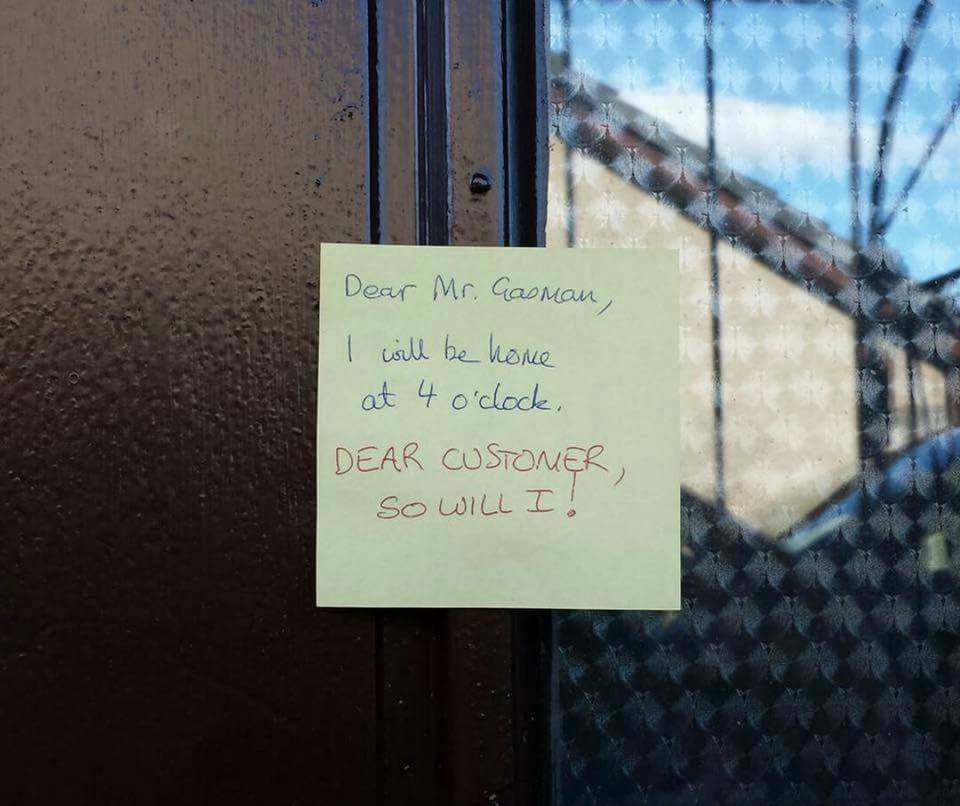 Dear Mr. Gasman,
I will be home
at 4 o'clock.
DEAR CUSTOMER,
SO WILL I!